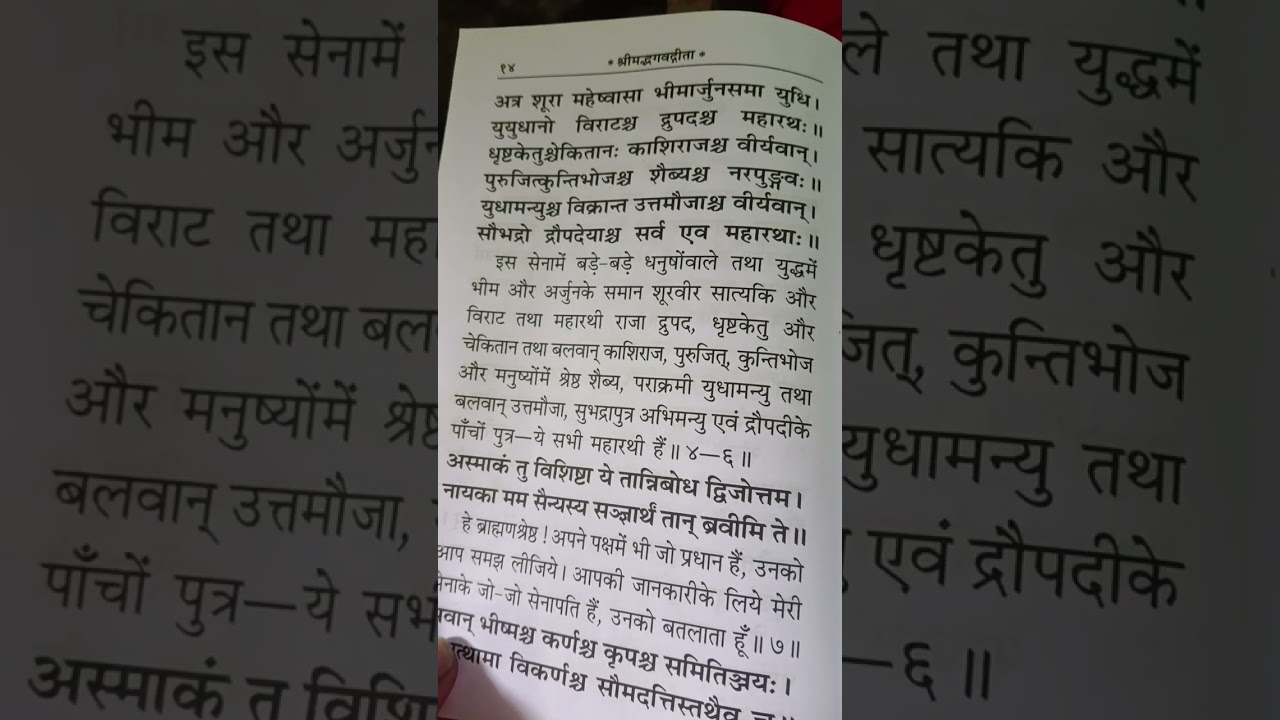 १४ * श्रीमद्भगवद्गीता *
अत्र शूरा महेष्वासा भीमार्जुनसमा युधि।
युयुधानो विराटश्च द्रुपदश्च महारथः॥
धृष्टकेतुश्चेकितानः काशिराजश्च वीर्यवान्।
पुरुजित्कुन्तिभोजश्च शैब्यश्च नरपुङ्गवः॥
युधामन्युश्च विक्रान्त उत्तमौजाश्च वीर्यवान्।
सौभद्रो द्रौपदेयाश्च सर्व एव महारथाः॥
इस सेनामें बड़े-बड़े धनुषोंवाले तथा युद्धमें
भीम और अर्जुनके समान शूरवीर सात्यकि और
विराट तथा महारथी राजा द्रुपद, धृष्टकेतु और
चेकितान तथा बलवान् काशिराज, पुरुजित्, कुन्तिभोज
और मनुष्योंमें श्रेष्ठ शैब्य, पराक्रमी युधामन्यु तथा
बलवान् उत्तमौजा, सुभद्रापुत्र अभिमन्यु एवं द्रौपदीके
पाँचों पुत्र—ये सभी महारथी हैं॥ ४—६॥
अस्माकं तु विशिष्टा ये तान्निबोध द्विजोत्तम।
नायका मम सैन्यस्य सञ्ज्ञार्थं तान् ब्रवीमि ते॥
हे ब्राह्मणश्रेष्ठ! अपने पक्षमें भी जो प्रधान हैं, उनको
आप समझ लीजिये। आपकी जानकारीके लिये मेरी
सेनाके जो-जो सेनापति हैं, उनको बतलाता हूँ॥ ७॥
भीष्मश्च कर्णश्च कृपश्च समितिञ्जयः।
विकर्णश्च सौमदत्तिस्तथैव च॥